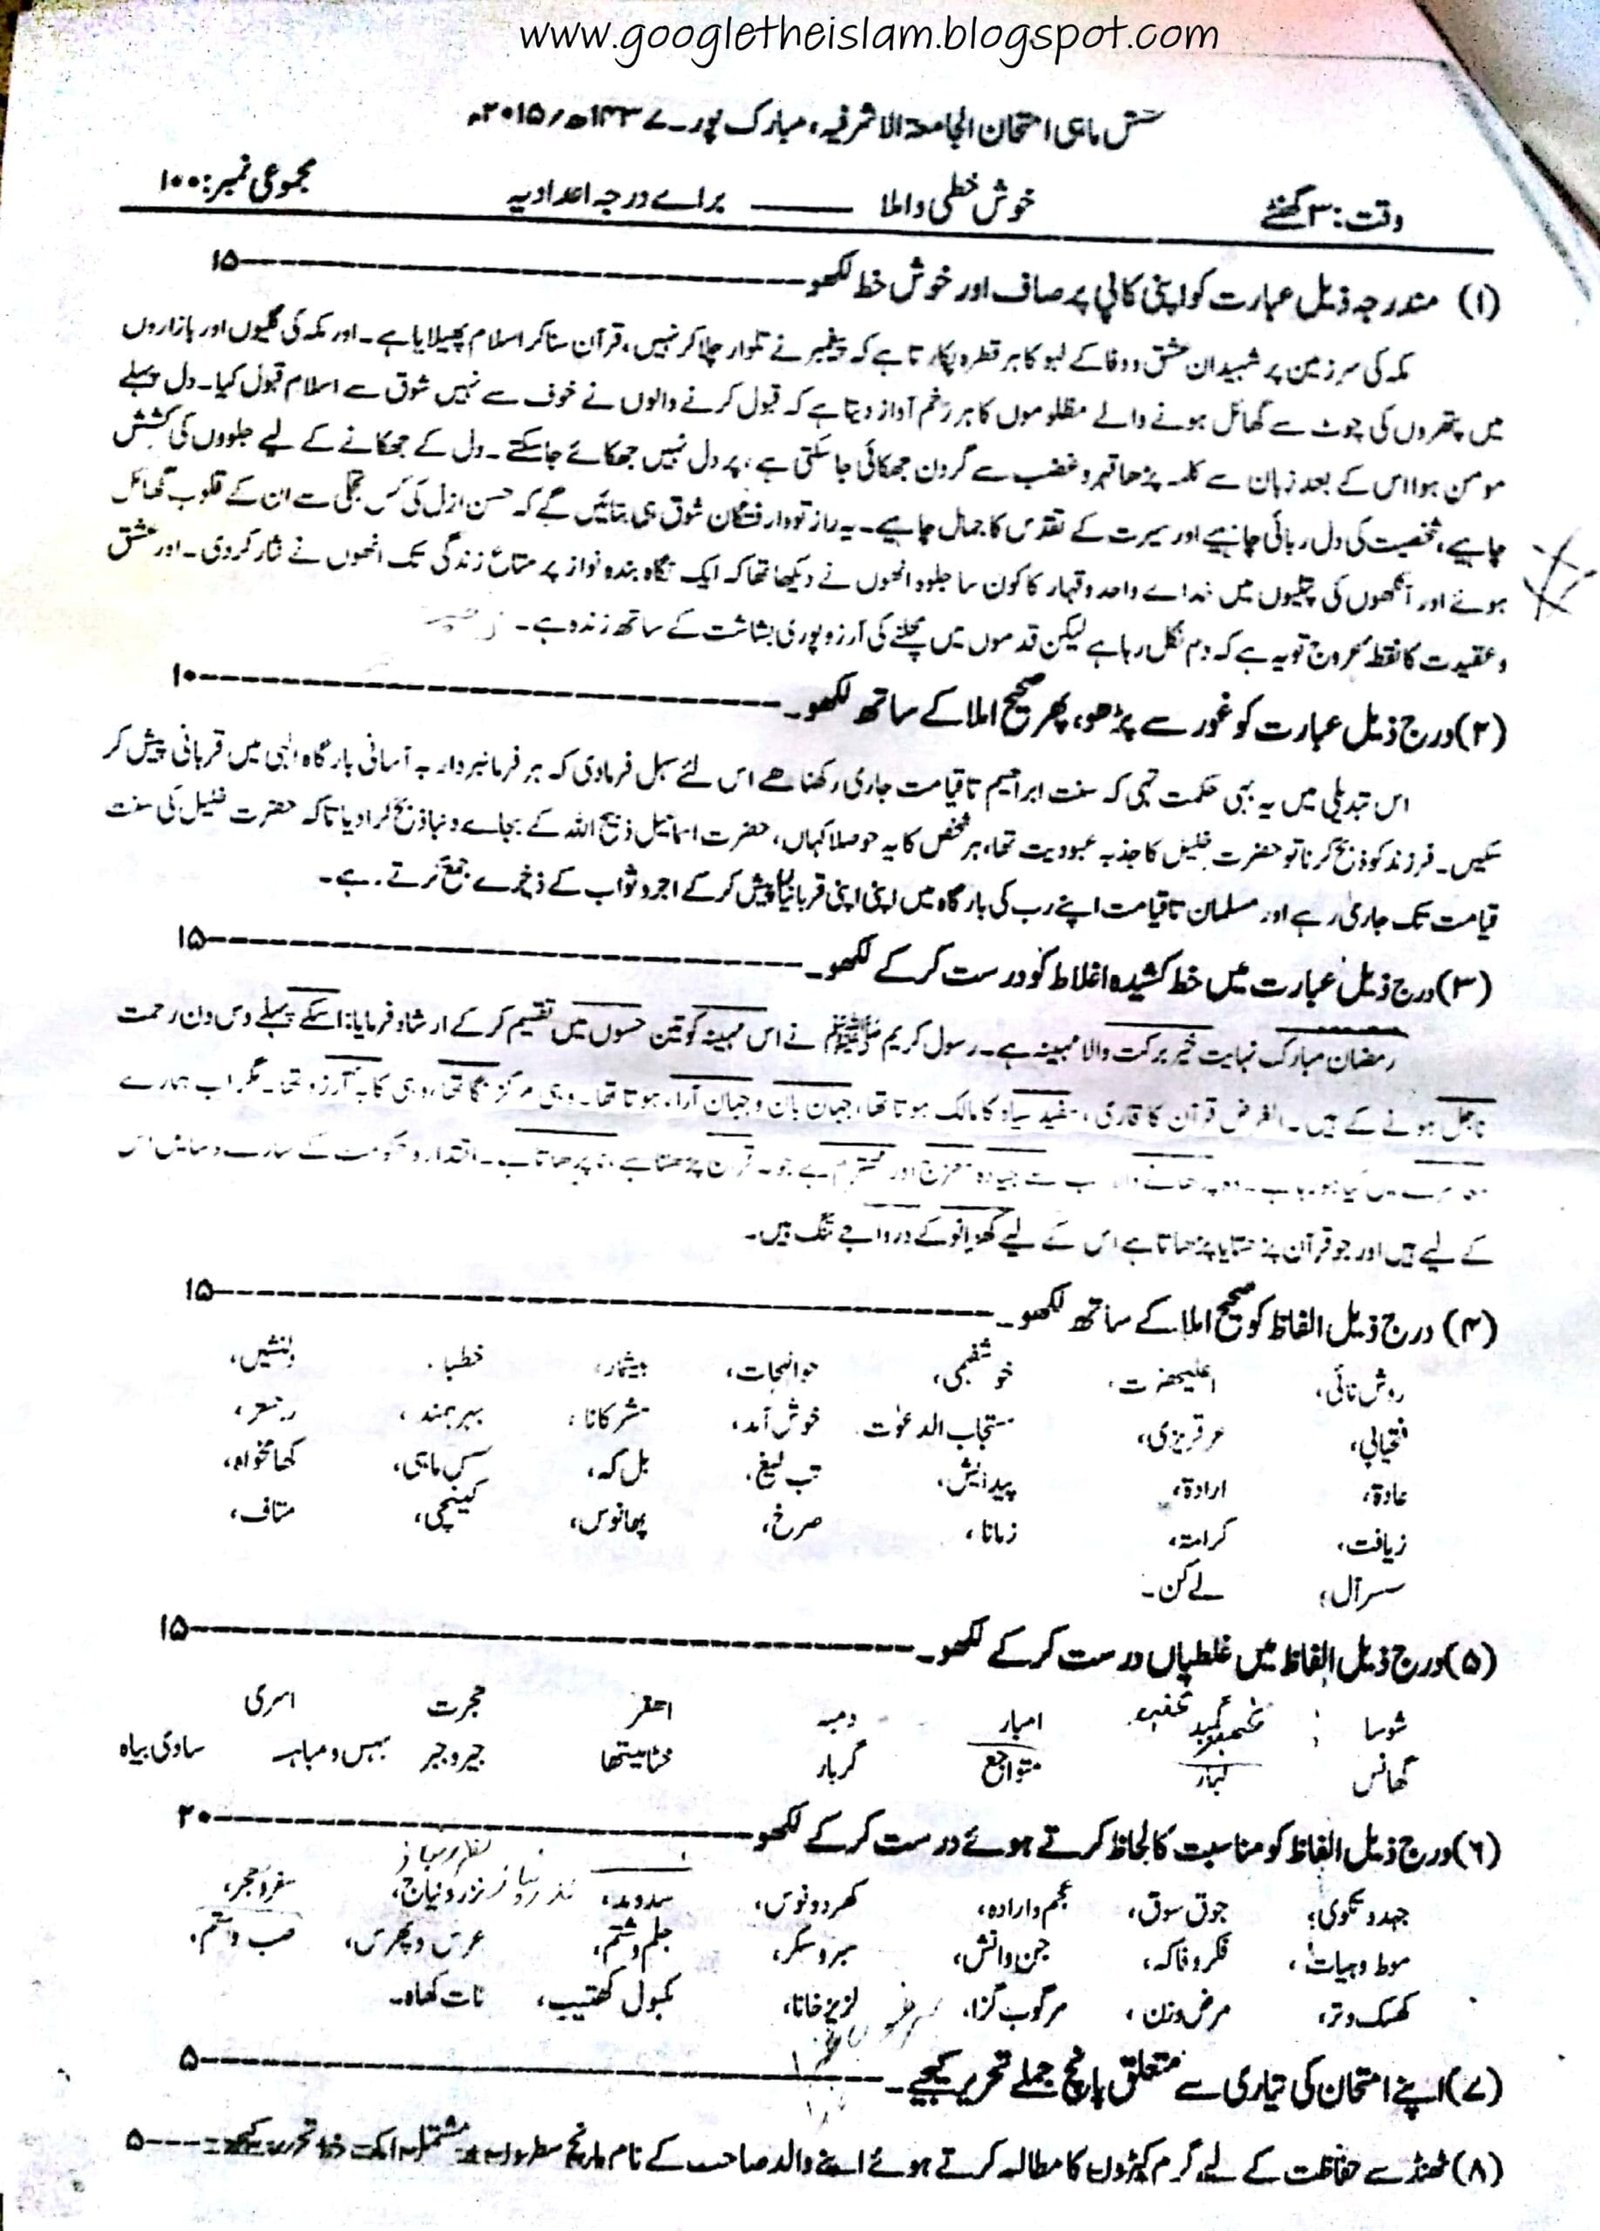 www.googletheislam.blogspot.com
شش ماہی امتحان الجامعۃ الاشرفیہ، مبارک پور۔ ۱۴۳۷ھ/۲۰۱۵ء
وقت: ۳ گھنٹے خوش خطی و املا ــــــــ براے درجہ اعدادیہ مجموعی نمبر: ۱۰۰
(۱) مندرجہ ذیل عبارت کو اپنی کاپی پر صاف اور خوش خط لکھو ۱۵
مکہ کی سرزمین پر شہیدان عشق و وفا کے لہو کا ہر قطرہ پکارتا ہے کہ پیغمبر نے تلوار چلا کر نہیں، قرآن سنا کر اسلام پھیلایا ہے۔ اور مکہ کی گلیوں اور بازاروں
میں پتھروں کی چوٹ سے گھائل ہونے والے مظلوموں کا ہر زخم آواز دیتا ہے کہ قبول کرنے والوں نے خوف سے نہیں شوق سے اسلام قبول کیا۔ دل پہلے
مومن ہوا اس کے بعد زبان سے کلمہ پڑھا قہر و غضب سے گردن جھکائی جا سکتی ہے، پر دل نہیں جھکائے جا سکتے۔ دل کے جھکانے کے لیے جلووں کی کشش
چاہیے، شخصیت کی دل ربائی چاہیے اور سیرت کے تقدس کا جمال چاہیے۔ یہ راز تو وارفتگان شوق ہی بتائیں گے کہ حسن ازل کی کس تجلی سے ان کے قلوب گھائل
ہوئے اور آنکھوں کی پتلیوں میں خداے واحد و قہار کا کون سا جلوہ انھوں نے دیکھا تھا کہ ایک نگاہ بندہ نواز پر متاع زندگی تک انھوں نے نثار کر دی۔ اور عشق
و عقیدت کا نقطۂ عروج تو یہ ہے کہ دم نکل رہا ہے لیکن قدموں میں مچلنے کی آرزو پوری بشاشت کے ساتھ زندہ ہے۔
(۲) درج ذیل عبارت کو غور سے پڑھو، پھر صحیح املا کے ساتھ لکھو۔ ۱۰
اس تبدیلی میں یہ بہی حکمت تہی کہ سنت ابراہیم تا قیامت جاری رکھنا ھے اس لئے سہل فرمادی کہ ہر فرمانبردار بہ آسانی بارگاہ الٰہی میں قربانی پیش کر
سکیں۔ فرزند کو ذبح کرنا تو حضرت خلیل کا جذبہ عبودیت تھا، ہر شخص کا یہ حوصلا کہاں، حضرت اسماعیل ذبیح اللہ کے بجاے دنبا ذبح کرا دیا تاکہ حضرت خلیل کی سنت
قیامت تک جاری رہے اور مسلمان تا قیامت اپنے رب کی بارگاہ میں اپنی اپنی قربانیاں پیش کر کے اجر و ثواب کے ذخیرے جمع کرتے رہے۔
(۳) درج ذیل عبارت میں خط کشیدہ اغلاط کو درست کر کے لکھو۔ ۱۵
رمضان مبارک نہایت خیر برکت والا مہینہ ہے۔ رسول کریم ﷺ نے اس مہینہ کو تین حسوں میں تقسیم کر کے ارشاد فرمایا: اسکے پہلے دس دن رحمت
ناجل ہونے کے ہیں۔ الغرض قرآن کا قاری، سفید سیاہ کا مالک ہوتا تھا، جہان بان و جہان آرا، ہوتا تھا۔ وہی مرکز نگا تھا، وہی کابۂ آرزو تھا۔ مگر اب ہمارے
اور جو قرآن پڑھتا ہے، اقتدار و حکومت کے سارے وسایل اس
کے لیے ہیں اور جو قرآن پڑھتا یا پڑھاتا ہے اس کے لیے کے درواجے تنگ ہیں۔
(۴) درج ذیل الفاظ کو صحیح املا کے ساتھ لکھو۔ ۱۵
روش نائی، اعلیحضرت، خوشفہمی، حوالجات، بیشمار، خطبا، دلنشیں،
فتحیابی، عرقریزی، مستجاب الدعوٰت خوش آمد، مشرکانا، بہرہمند،
عادۃ، ارادۃ، پیدائش، تب لیغ، بل کہ، کھامخواہ،
زیافت، کرامۃ، زمانا، صرخ، پھانوس، کینچی، متاف،
سسرآل، لے کن۔
(۵) درج ذیل الفاظ میں غلطیاں درست کر کے لکھو۔ ۱۵
شوسا امبار دمبہ احقر ھجرت اسری
گھانس لبار متواجع گربار کھٹا میٹھا جیر و جبر بہس و مباہسہ سادی بیاہ
(۶) درج ذیل الفاظ کو مناسبت کا لحاظ کرتے ہوئے درست کر کے لکھو ۲۰
جہد و تکوی، جوق سوق، عجم و ارادہ، کھردونوس، نزر و نیاج،
موط و حیات، فکر و فاکہ، جن و انش، سبر و سکر، جلم و شتم، عرس و پھرس، صب و شتم،
کھسک و تر، مرض وزن، مرگوب گزا، لزیز خانا، کمبول کھتیب، نات کھاہ۔
(۷) اپنے امتحان کی تیاری سے متعلق پانچ جملے تحریر کیجیے۔ ۵
(۸) ٹھنڈ سے حفاظت کے لیے گرم کپڑوں کا مطالبہ کرتے ہوئے اپنے والد صاحب کے نام پانچ سطروں پر مشتمل ایک خط تحریر کیجیے۔ ۵